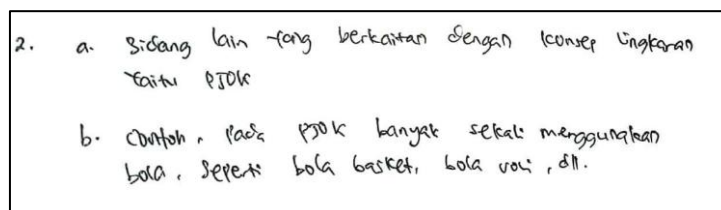 2. a. Bidang lain yang berkaitan dengan konsep lingkaran
yaitu PJOK
b. Contoh, pada PJOK banyak sekali menggunakan
bola, seperti bola basket, bola voli, dll.